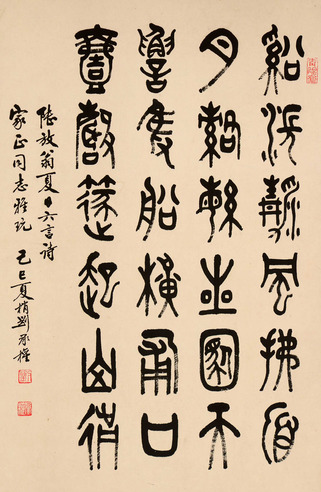 谿漲清風拂面
月落繁星滿天
數隻船橫浦口
壹聲篴起山前
陸放翁夏日六言詩
家正同志雅玩 己巳夏 劉